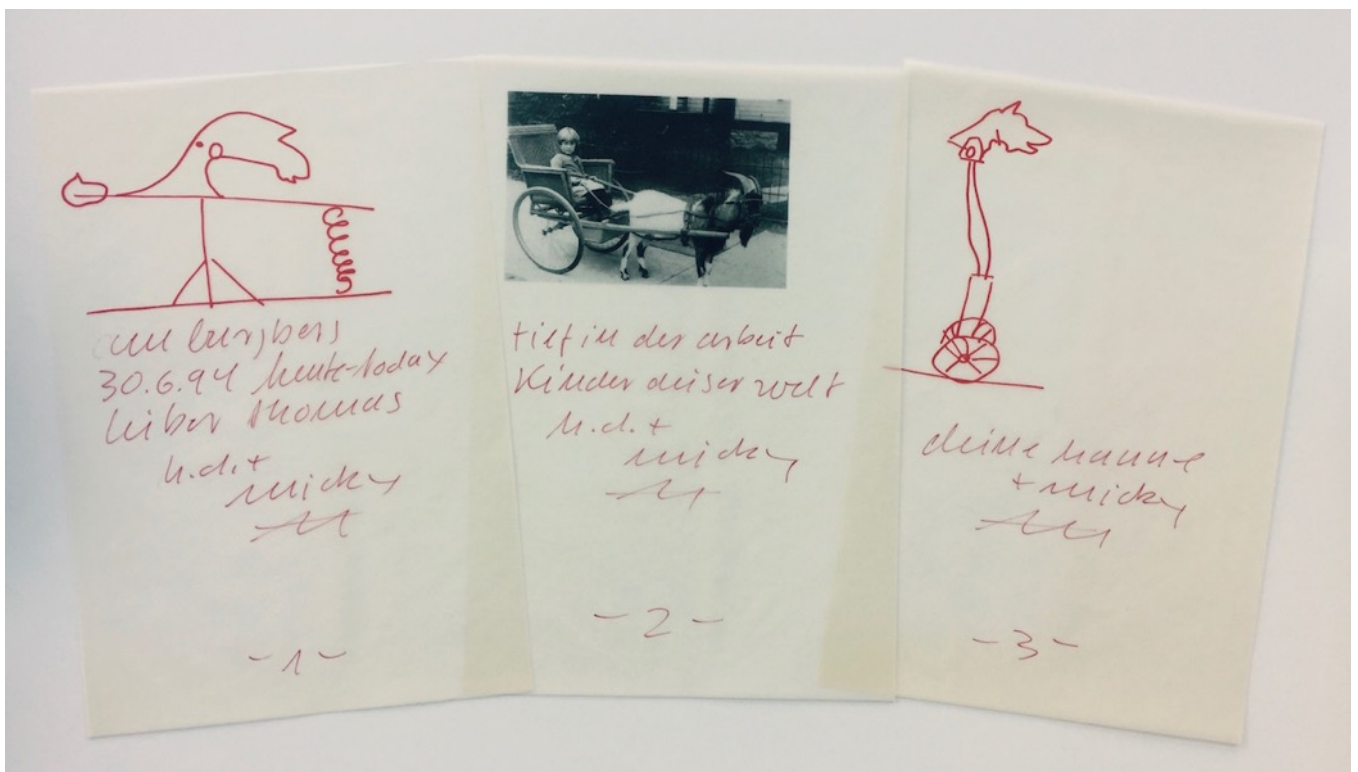 am burgberg
30.6.94 heute-today
lieber thomas
h.d.+
micky
-1-
tief in der arbeit
Kinder dieser welt
h.d.+
micky
-2-
deine hanne
+ micky
-3-